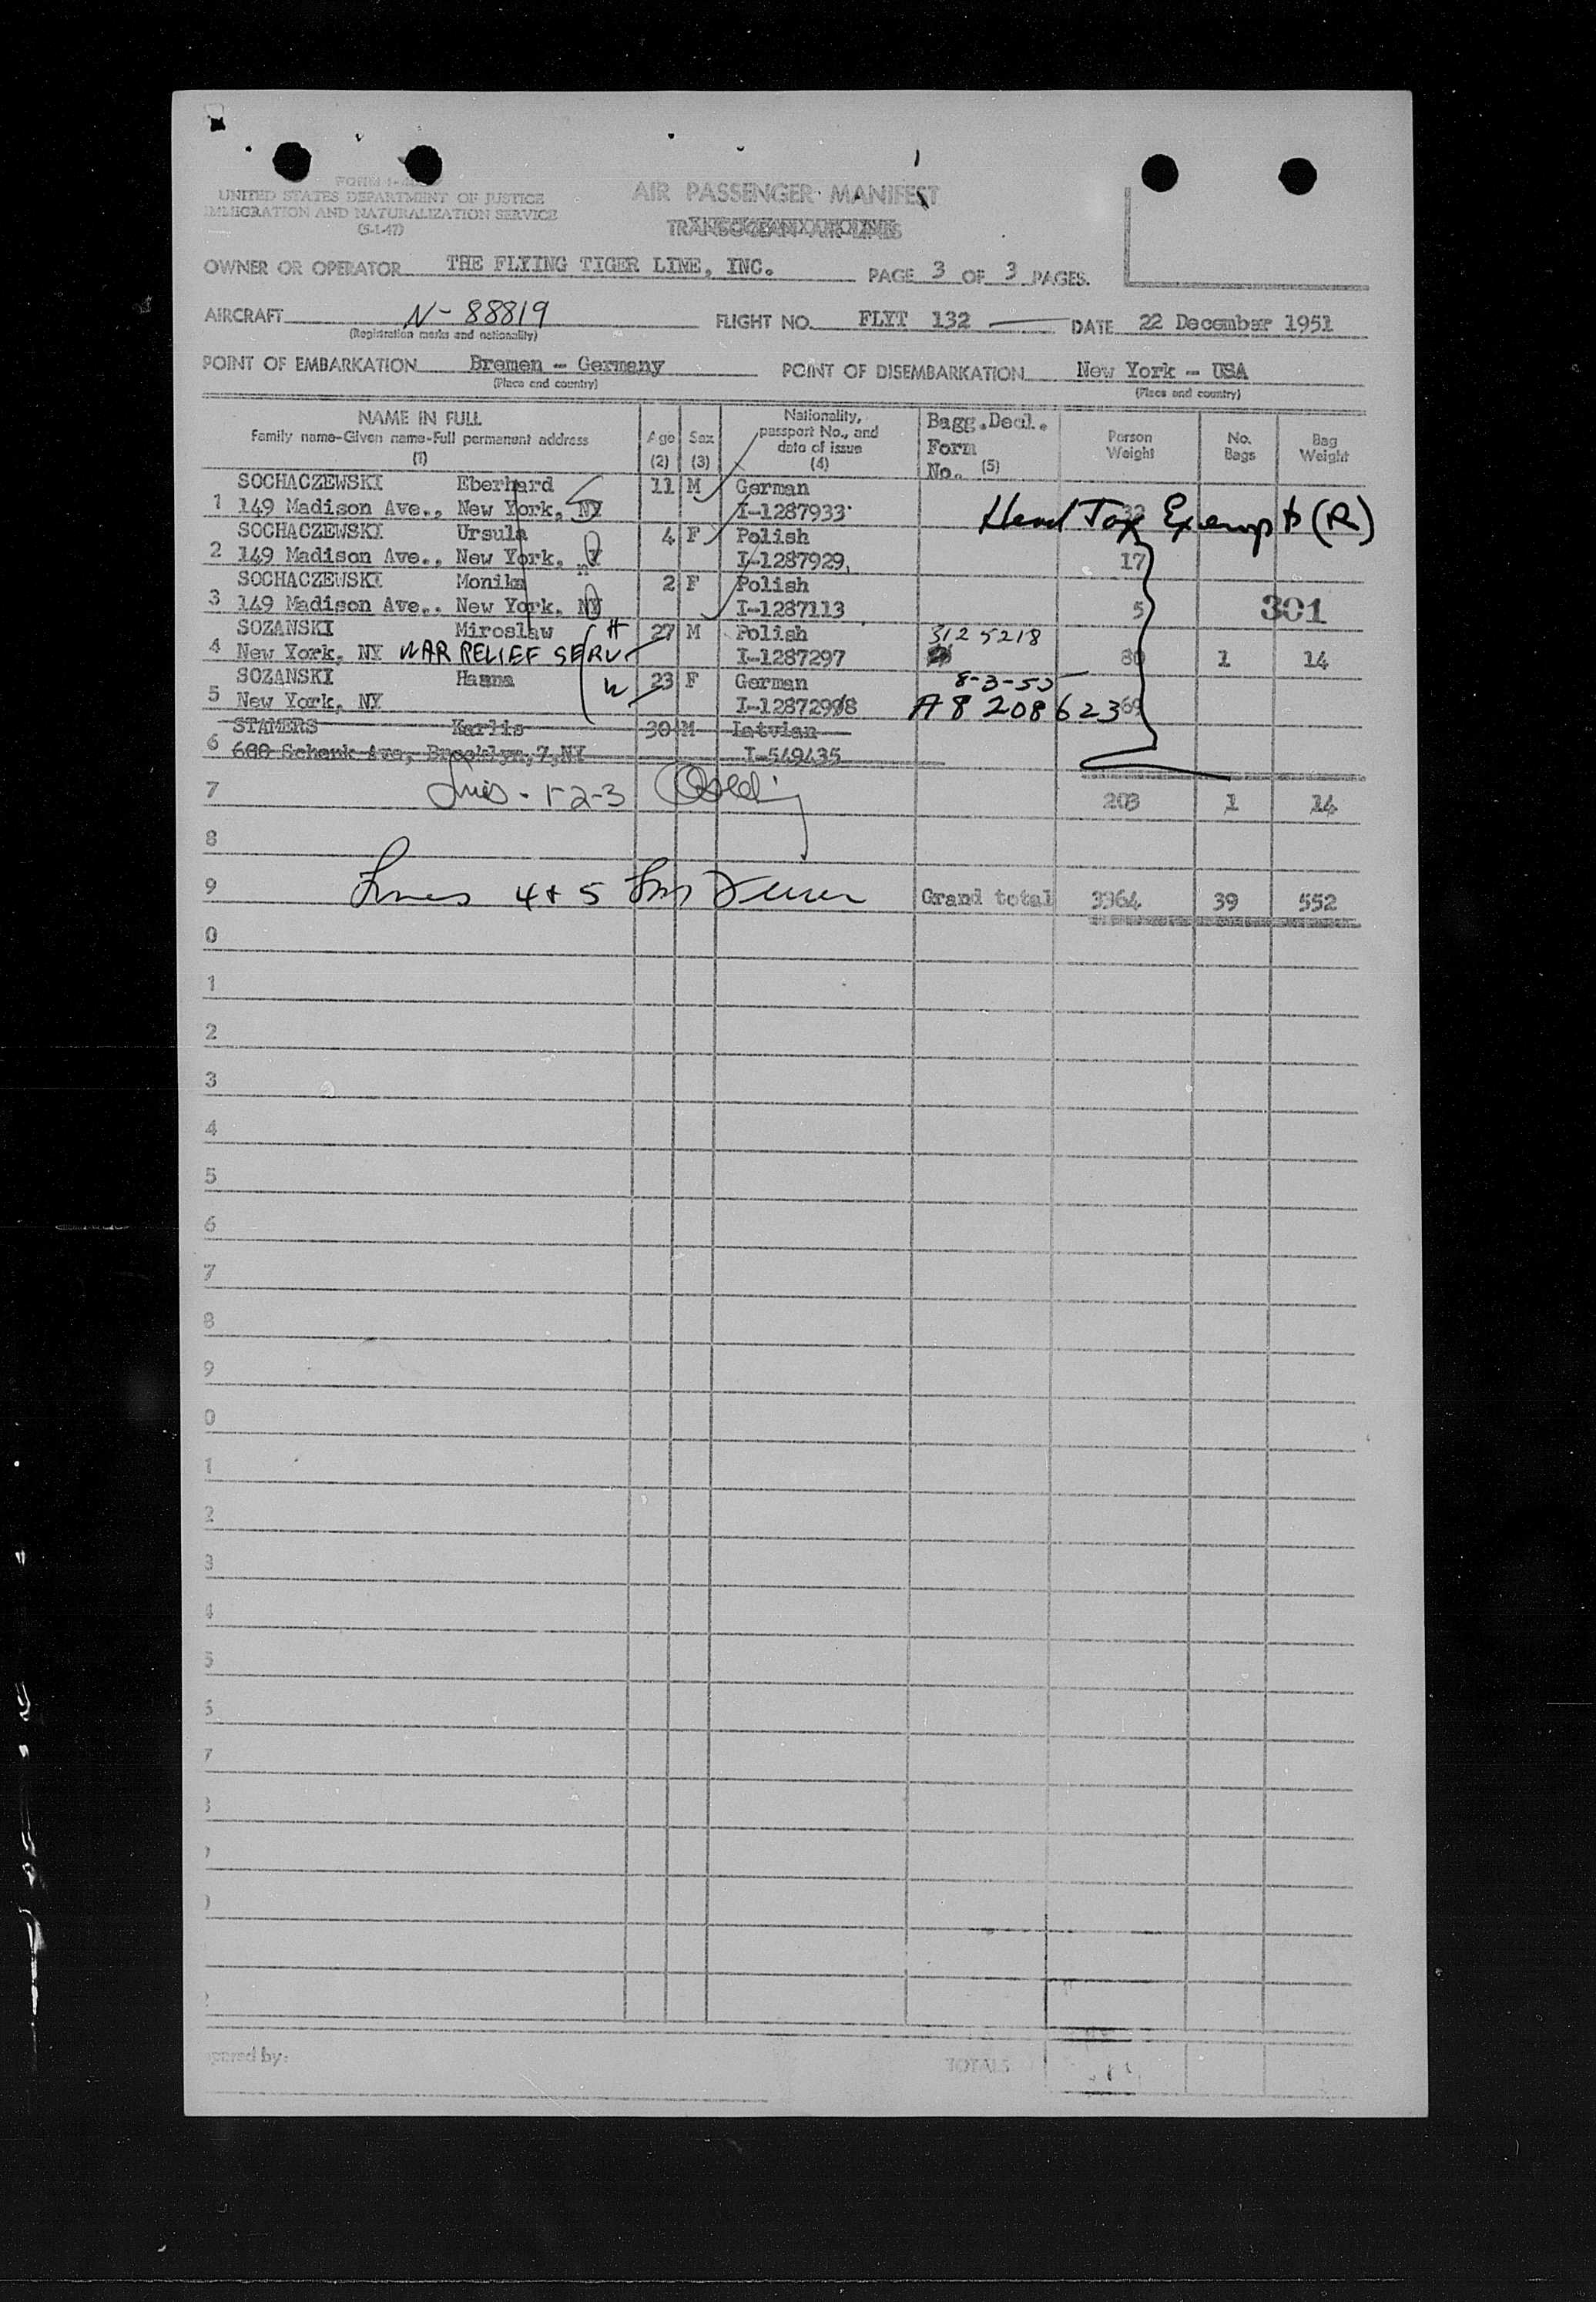 UNITED STATES DEPARTMENT OF JUSTICE
IMMIGRATION AND NATURALIZATION SERVICE
(5-1-47)
AIR PASSENGER MANIFEST
TRANSOCEAN AIR LINES
OWNER OR OPERATOR THE FLYING TIGER LINE, INC. PAGE 3 OF 3 PAGES.
AIRCRAFT N-88819 FLIGHT NO. FLYT 132 DATE 22 December 1951
(Registration marks and nationality)
POINT OF EMBARKATION Bremen - Germany POINT OF DISEMBARKATION New York - USA
(Place and country) (Place and country)
NAME IN FULL
Family name-Given name-Full permanent address
(1)
Age
(2)
Sex
(3)
Nationality,
passport No., and
date of issue
(4)
Bagg.Decl.
Form
No. (5)
Person
Weight
No.
Bags
Bag
Weight
SOCHACZEWSKI Eberhard 11 M German
1 149 Madison Ave., New York, NY I-1287933 32
Head Tax Exempt (R)
SOCHACZEWSKI Ursula 4 F Polish
2 149 Madison Ave., New York, I-1287929 17
SOCHACZEWSKI Monika 2 F Polish
3 149 Madison Ave., New York, NY I-1287113 5 301
SOZANSKI Miroslaw H 27 M Polish 3125218
4 New York, NY WAR RELIEF SERV I-1287297 80 1 14
SOZANSKI Hanna W 23 F German 8-3-53
5 New York, NY I-1287298 A8 208623 69
STAMERS Karlis 30 M Latvian
6 600 Schenk Ave, Brooklyn,7,NY I-549435
7 Lines - 1-2-3 203 1 14
8
9 Lines 4+5 Grand total 3964 39 552
0
1
2
3
4
5
6
7
8
9
0
1
2
3
4
5
6
7
TOTALS